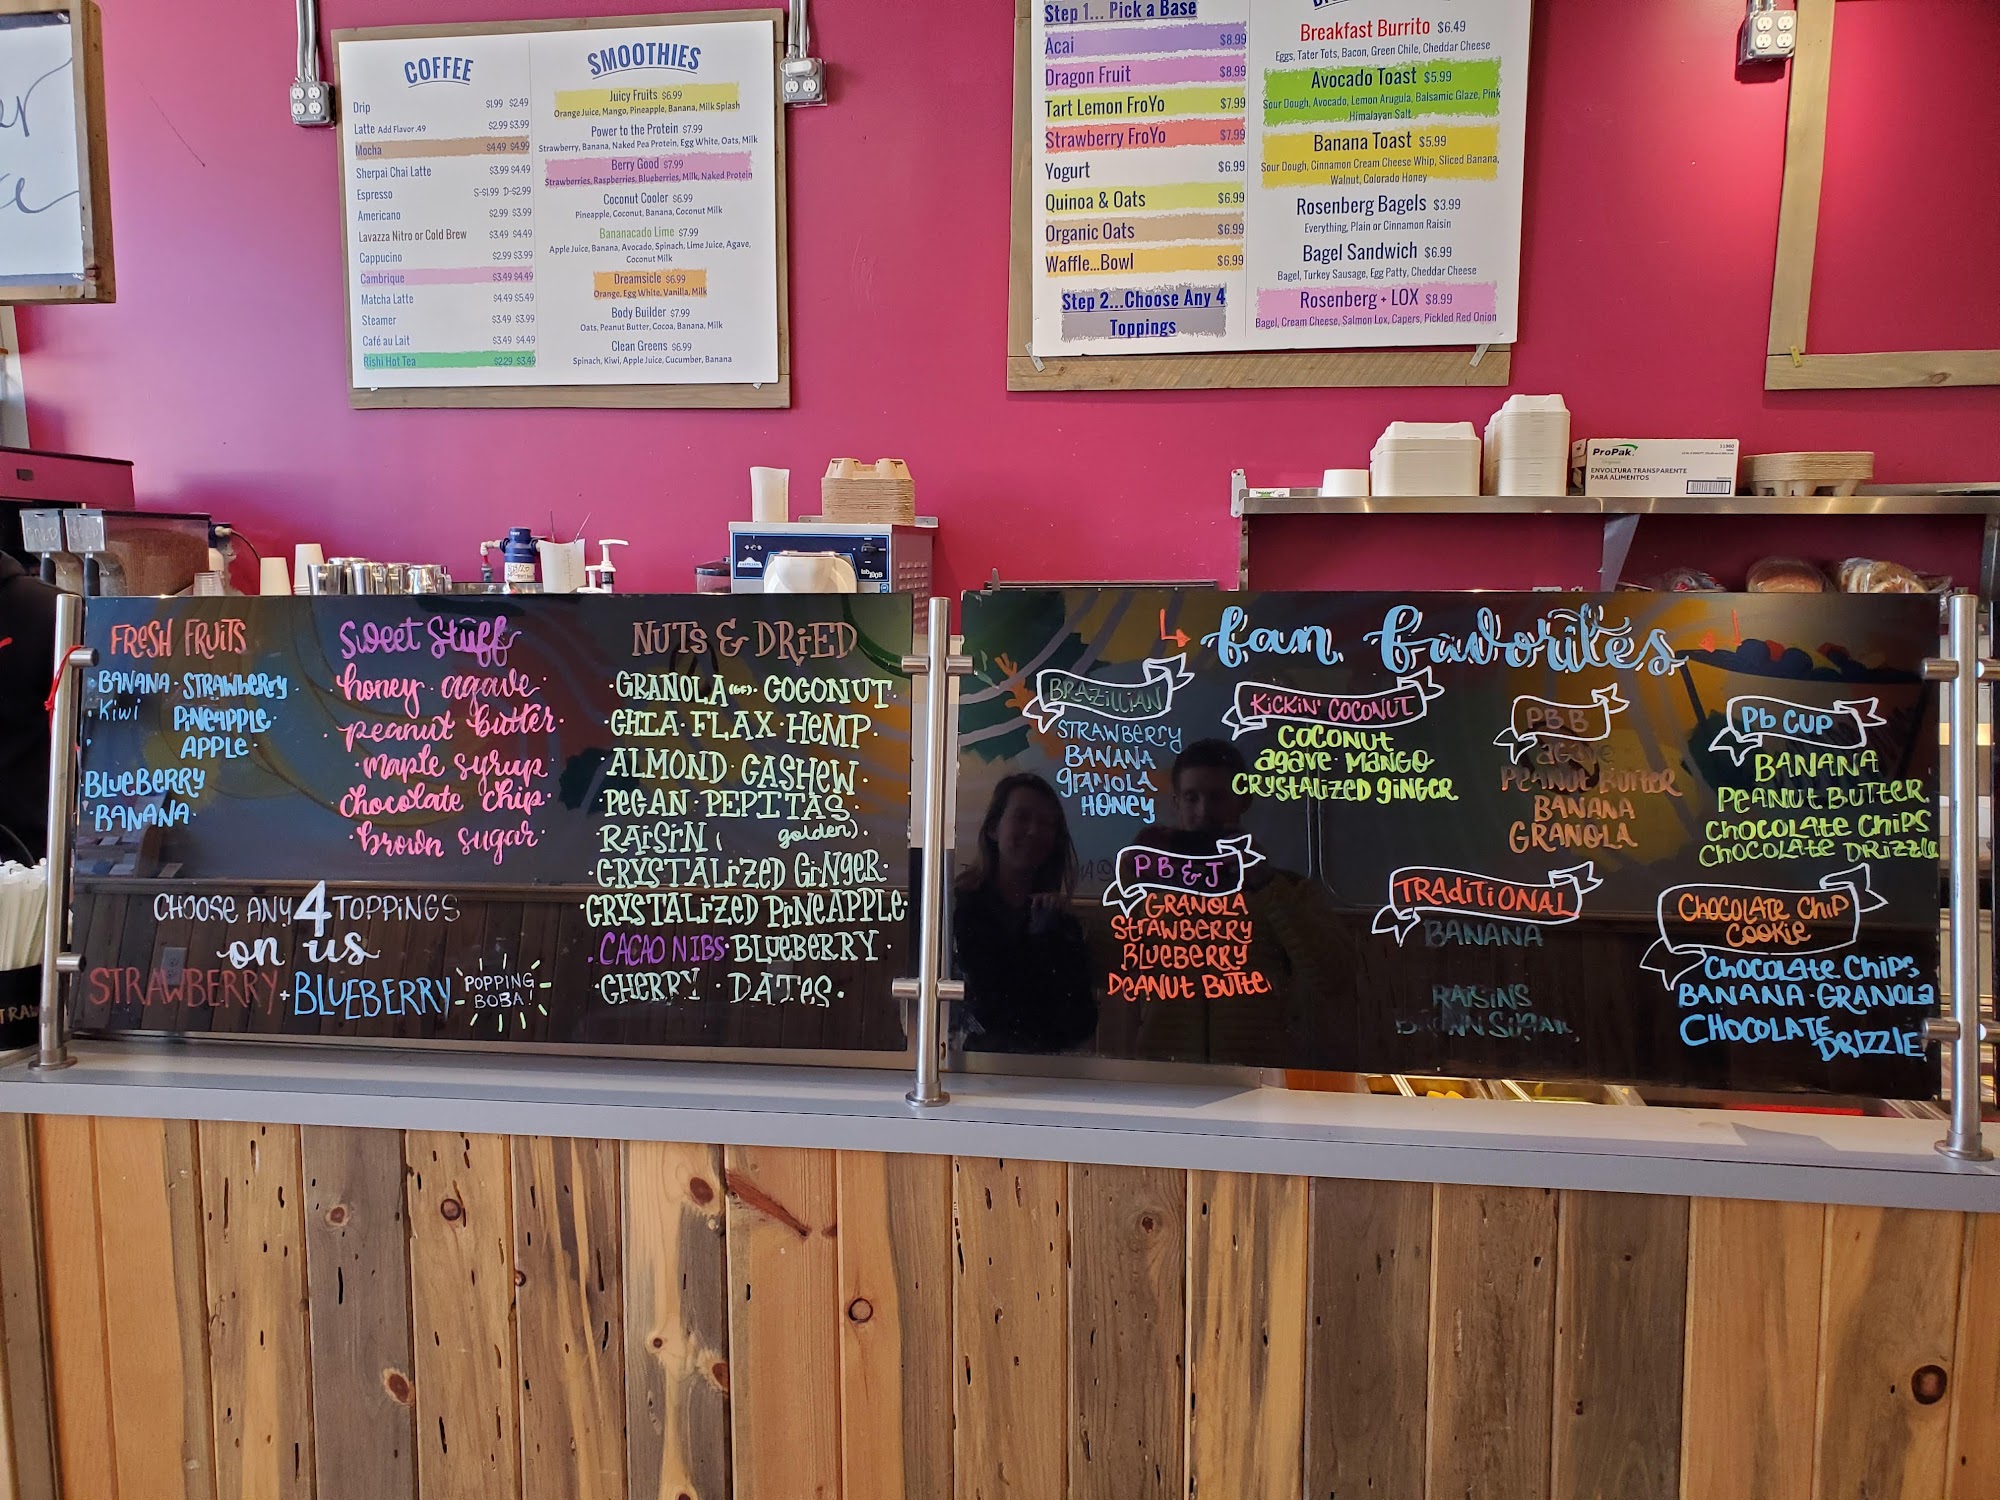 COFFEE
Drip $1.99 $2.49
Latte Add Flavor .49 $2.99 $3.99
Mocha $4.49 $4.99
Sherpai Chai Latte $3.99 $4.49
Espresso S-$1.99 D-$2.99
Americano $2.99 $3.99
Lavazza Nitro or Cold Brew $3.49 $4.49
Cappucino $2.99 $3.99
Cambrique $3.49 $4.49
Matcha Latte $4.49 $5.49
Steamer $3.49 $3.99
Café au Lait $3.49 $4.49
Rishi Hot Tea $2.29 $3.49
SMOOTHIES
Juicy Fruits $6.99
Orange Juice, Mango, Pineapple, Banana, Milk Splash
Power to the Protein $7.99
Strawberry, Banana, Naked Pea Protein, Egg White, Oats, Milk
Berry Good $7.99
Strawberries, Raspberries, Blueberries, Milk, Naked Protein
Coconut Cooler $6.99
Pineapple, Coconut, Banana, Coconut Milk
Bananacado Lime $7.99
Apple Juice, Banana, Avocado, Spinach, Lime Juice, Agave,
Coconut Milk
Dreamsicle $6.99
Orange, Egg White, Vanilla, Milk
Body Builder $7.99
Oats, Peanut Butter, Cocoa, Banana, Milk
Clean Greens $6.99
Spinach, Kiwi, Apple Juice, Cucumber, Banana
Step 1... Pick a Base
Acai $8.99
Dragon Fruit $8.99
Tart Lemon FroYo $7.99
Strawberry FroYo $7.99
Yogurt $6.99
Quinoa & Oats $6.99
Organic Oats $6.99
Waffle...Bowl $6.99
Step 2...Choose Any 4
Toppings
Breakfast Burrito $6.49
Eggs, Tater Tots, Bacon, Green Chile, Cheddar Cheese
Avocado Toast $5.99
Sour Dough, Avocado, Lemon Arugula, Balsamic Glaze, Pink
Himalayan Salt
Banana Toast $5.99
Sour Dough, Cinnamon Cream Cheese Whip, Sliced Banana,
Walnut, Colorado Honey
Rosenberg Bagels $3.99
Everything, Plain or Cinnamon Raisin
Bagel Sandwich $6.99
Bagel, Turkey Sausage, Egg Patty, Cheddar Cheese
Rosenberg + LOX $8.99
Bagel, Cream Cheese, Salmon Lox, Capers, Pickled Red Onion
ProPak
ENVOLTURA TRANSPARENTE
PARA ALIMENTOS
FRESH FRUITS
BANANA · STRAWBERRY
· Kiwi PINEAPPLE·
APPLE·
BLUEBERRY
·BANANA·
Sweet Stuff
·honey·agave·
·peanut butter·
·maple syrup·
chocolate chip·
·brown sugar·
CHOOSE ANY 4 TOPPINGS
on us
STRAWBERRY + BLUEBERRY POPPING
BOBA!
NUTS & DRIED
·GRANOLA (GF)·COCONUT·
·CHIA·FLAX·HEMP·
·ALMOND·CASHEW·
·PECAN·PEPITAS·
·RAISIN ( golden)·
·CRYSTALIZED GINGER·
·CRYSTALIZED PINEAPPLE·
·CACAO NIBS·BLUEBERRY·
·CHERRY·DATES·
fan favorites
BRAZILLIAN
STRAWBERRY
BANANA
GRANOLA
HONEY
KICKIN' COCONUT
COCONUT
AGAVE·MANGO
CRYSTALIZED GINGER
PBB
AGAVE
PEANUT BUTTER
BANANA
GRANOLA
Pb CUP
BANANA
PEANUT BUTTER
CHOCOLATE CHIPS
CHOCOLATE DRIZZLE
PB & J
GRANOLA
STRAWBERRY
BLUEBERRY
PEANUT BUTTE
TRADITIONAL
BANANA
RAISINS
BROWN SUGAR
CHOCOLATE CHIP
COOKIE
CHOCOLATE CHIPS
BANANA·GRANOLA
CHOCOLATE
DRIZZLE